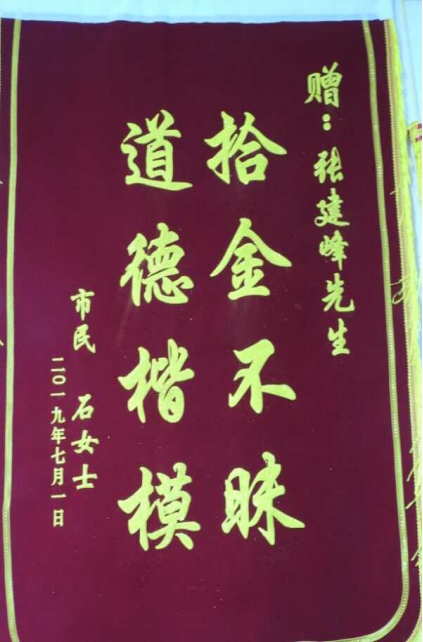 赠：张建峰先生
拾金不昧
道德楷模
市民 石女士
二〇一九年七月一日